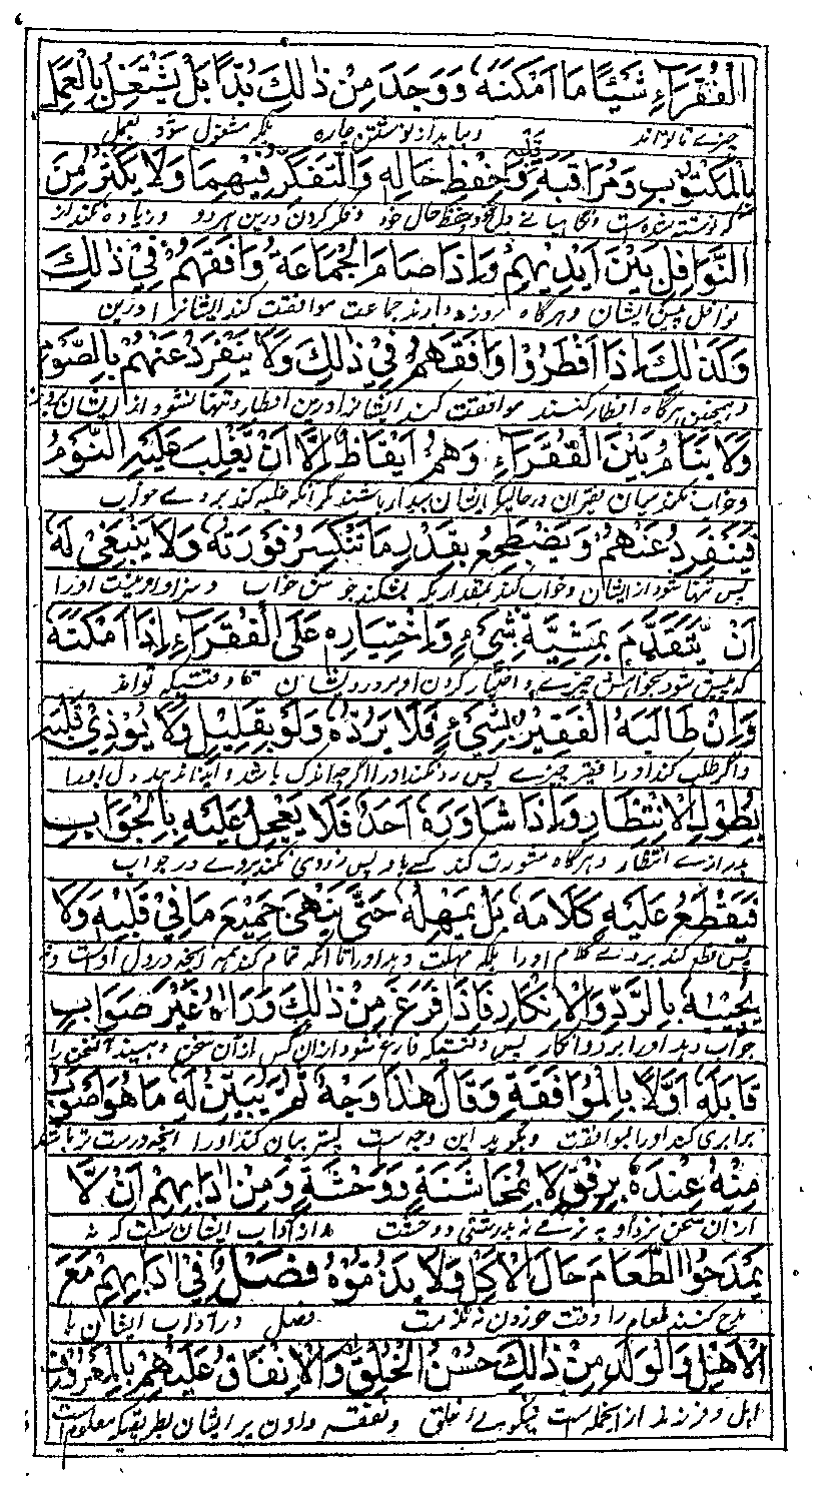 الْفُقَرَآءِ شَيْئًا مَا اَمْكَنَهٗ وَوَجَدَ مِنْ ذٰلِكَ بُدًّا بَلْ يَشْتَغِلُ بِالْعَمَلِ
چیزے تا تواند و بیابد از نوشتن چاره بلکه مشغول شود بعمل
بِالْمَكْتُوْبِ وَمُرَاقَبَةِ قَلْبِهٖ وَحِفْظِ حَالِهٖ وَالتَّفَكُّرِ فِيْهِمَا وَلَا يُكْثِرُ مِنَ
که نوشته شده است و نگاهبانی دل خود و حفظ حال خود و فکر کردن درین هر دو و زیاده نکند از
النَّوَافِلِ بَيْنَ اَيْدِيْهِمْ وَاِذَا صَامَ الْجَمَاعَةُ وَافَقَهُمْ فِيْ ذٰلِكَ
نوافل پیش ایشان و هرگاه روزه دارند جماعت موافقت کند ایشانرا درین
وَكَذٰلِكَ اِذَا اَفْطَرُوْا وَافَقَهُمْ فِيْ ذٰلِكَ وَلَا يَنْفَرِدُ عَنْهُمْ بِالصَّوْمِ
و همچنین هرگاه افطار کنند موافقت کند ایشانرا درین افطار و تنها نشود از ایشان بروزه
وَلَا يَنَامُ بَيْنَ الْفُقَرَآءِ وَهُمْ اَيْقَاظٌ اِلَّا اَنْ يَّغْلِبَ عَلَيْهِ النَّوْمُ
و خواب نکند میان فقیران در حالیکه ایشان بیدار باشند مگر آنکه غلبه کند بر وے خواب
فَيَنْفَرِدُ عَنْهُمْ وَيَضْطَجِعُ بِقَدْرِ مَا تَنْكَسِرُ فَوْرَتُهٗ وَلَا يَنْبَغِيْ لَهٗ
پس تنها شود از ایشان و خواب کند بمقداریکه بشکند جوشش خواب و سزاوار نیست او را
اَنْ يَّتَقَدَّمَ بِمَشِيَّةِ شَيْءٍ وَاخْتِيَارِهٖ عَلَى الْفُقَرَآءِ اِذَا اَمْكَنَهٗ
که پیش شود بخواهش چیزے و اختیار کردن او بر درویشان تا وقتیکه تواند
وَاِنْ طَالَبَهُ الْفَقِيْرُ بِشَيْءٍ فَلَا يَرُدُّهٗ وَلَوْ بِقَلِيْلٍ وَلَا يُؤْذِيْ قَلْبَهٗ
و اگر طلب کند او را فقیر چیزے پس رد نکند او را اگرچه اندک باشد و ایذا ندهد دل او را
بِطُوْلِ الْاِنْتِظَارِ وَاِذَا شَاوَرَهٗ اَحَدٌ فَلَا يَعْجَلُ عَلَيْهِ بِالْجَوَابِ
بدرازے انتظار و هرگاه مشورت کند کسے باو پس زودی نکند بر وے در جواب
فَيَقْطَعُ عَلَيْهِ كَلَامَهٗ بَلْ يُمْهِلُهٗ حَتّٰى يُنْهِىَ جَمِيْعَ مَا فِيْ قَلْبِهٖ وَلَا
پس قطع کند بر وے کلام او را بلکه مهلت دهد او را تا آنکه تمام کند همه آنچه در دل اوست و نه
يُجِيْبُهٗ بِالرَّدِّ وَالْاِنْكَارِ فَاِذَا فَرَغَ مِنْ ذٰلِكَ وَرَاٰهُ غَيْرَ صَوَابٍ
جواب دهد او را برد و انکار پس وقتیکه فارغ شود آن کس از آن سخن و ببیند آن سخن را
قَابَلَهٗ اَوَّلًا بِالْمُوَافَقَةِ وَقَالَ هٰذَا وَجْهٌ ثُمَّ يُبَيِّنُ لَهٗ مَا هُوَ اَصْوَبُ
برابری کند او را بموافقت و بگوید این وجه ست پستر بیان کند او را آنچه درست تر باشد
مِنْهُ عِنْدَهٗ بِرِفْقٍ لَا بِمُخَاشَنَةٍ وَوَحْشَةٍ وَمِنْ اٰدَابِهِمْ اَنْ لَّا
از آن سخن نزد او به نرمے نه بدرشتی و وحشت و از آداب ایشان ست که نه
يَمْدَحُوا الطَّعَامَ حَالَ الْاَكْلِ وَلَا يَذُمُّوْهُ فَصْلٌ فِيْ اٰدَابِهِمْ مَعَ
مدح کنند طعام را وقت خوردن و نه مذمت فصل در آداب ایشان با
الْاَهْلِ وَالْوَلَدِ مِنْ ذٰلِكَ حُسْنُ الْخُلُقِ وَالْاِنْفَاقُ عَلَيْهِمْ بِالْمَعْرُوْفِ
اهل و فرزند از آنجمله است نیکوے خلق و نفقه دادن بر ایشان بطریقیکه معلوم است